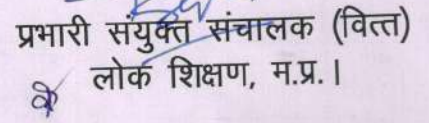 प्रभारी संयुक्त संचालक (वित्त)
लोक शिक्षण, म.प्र.।